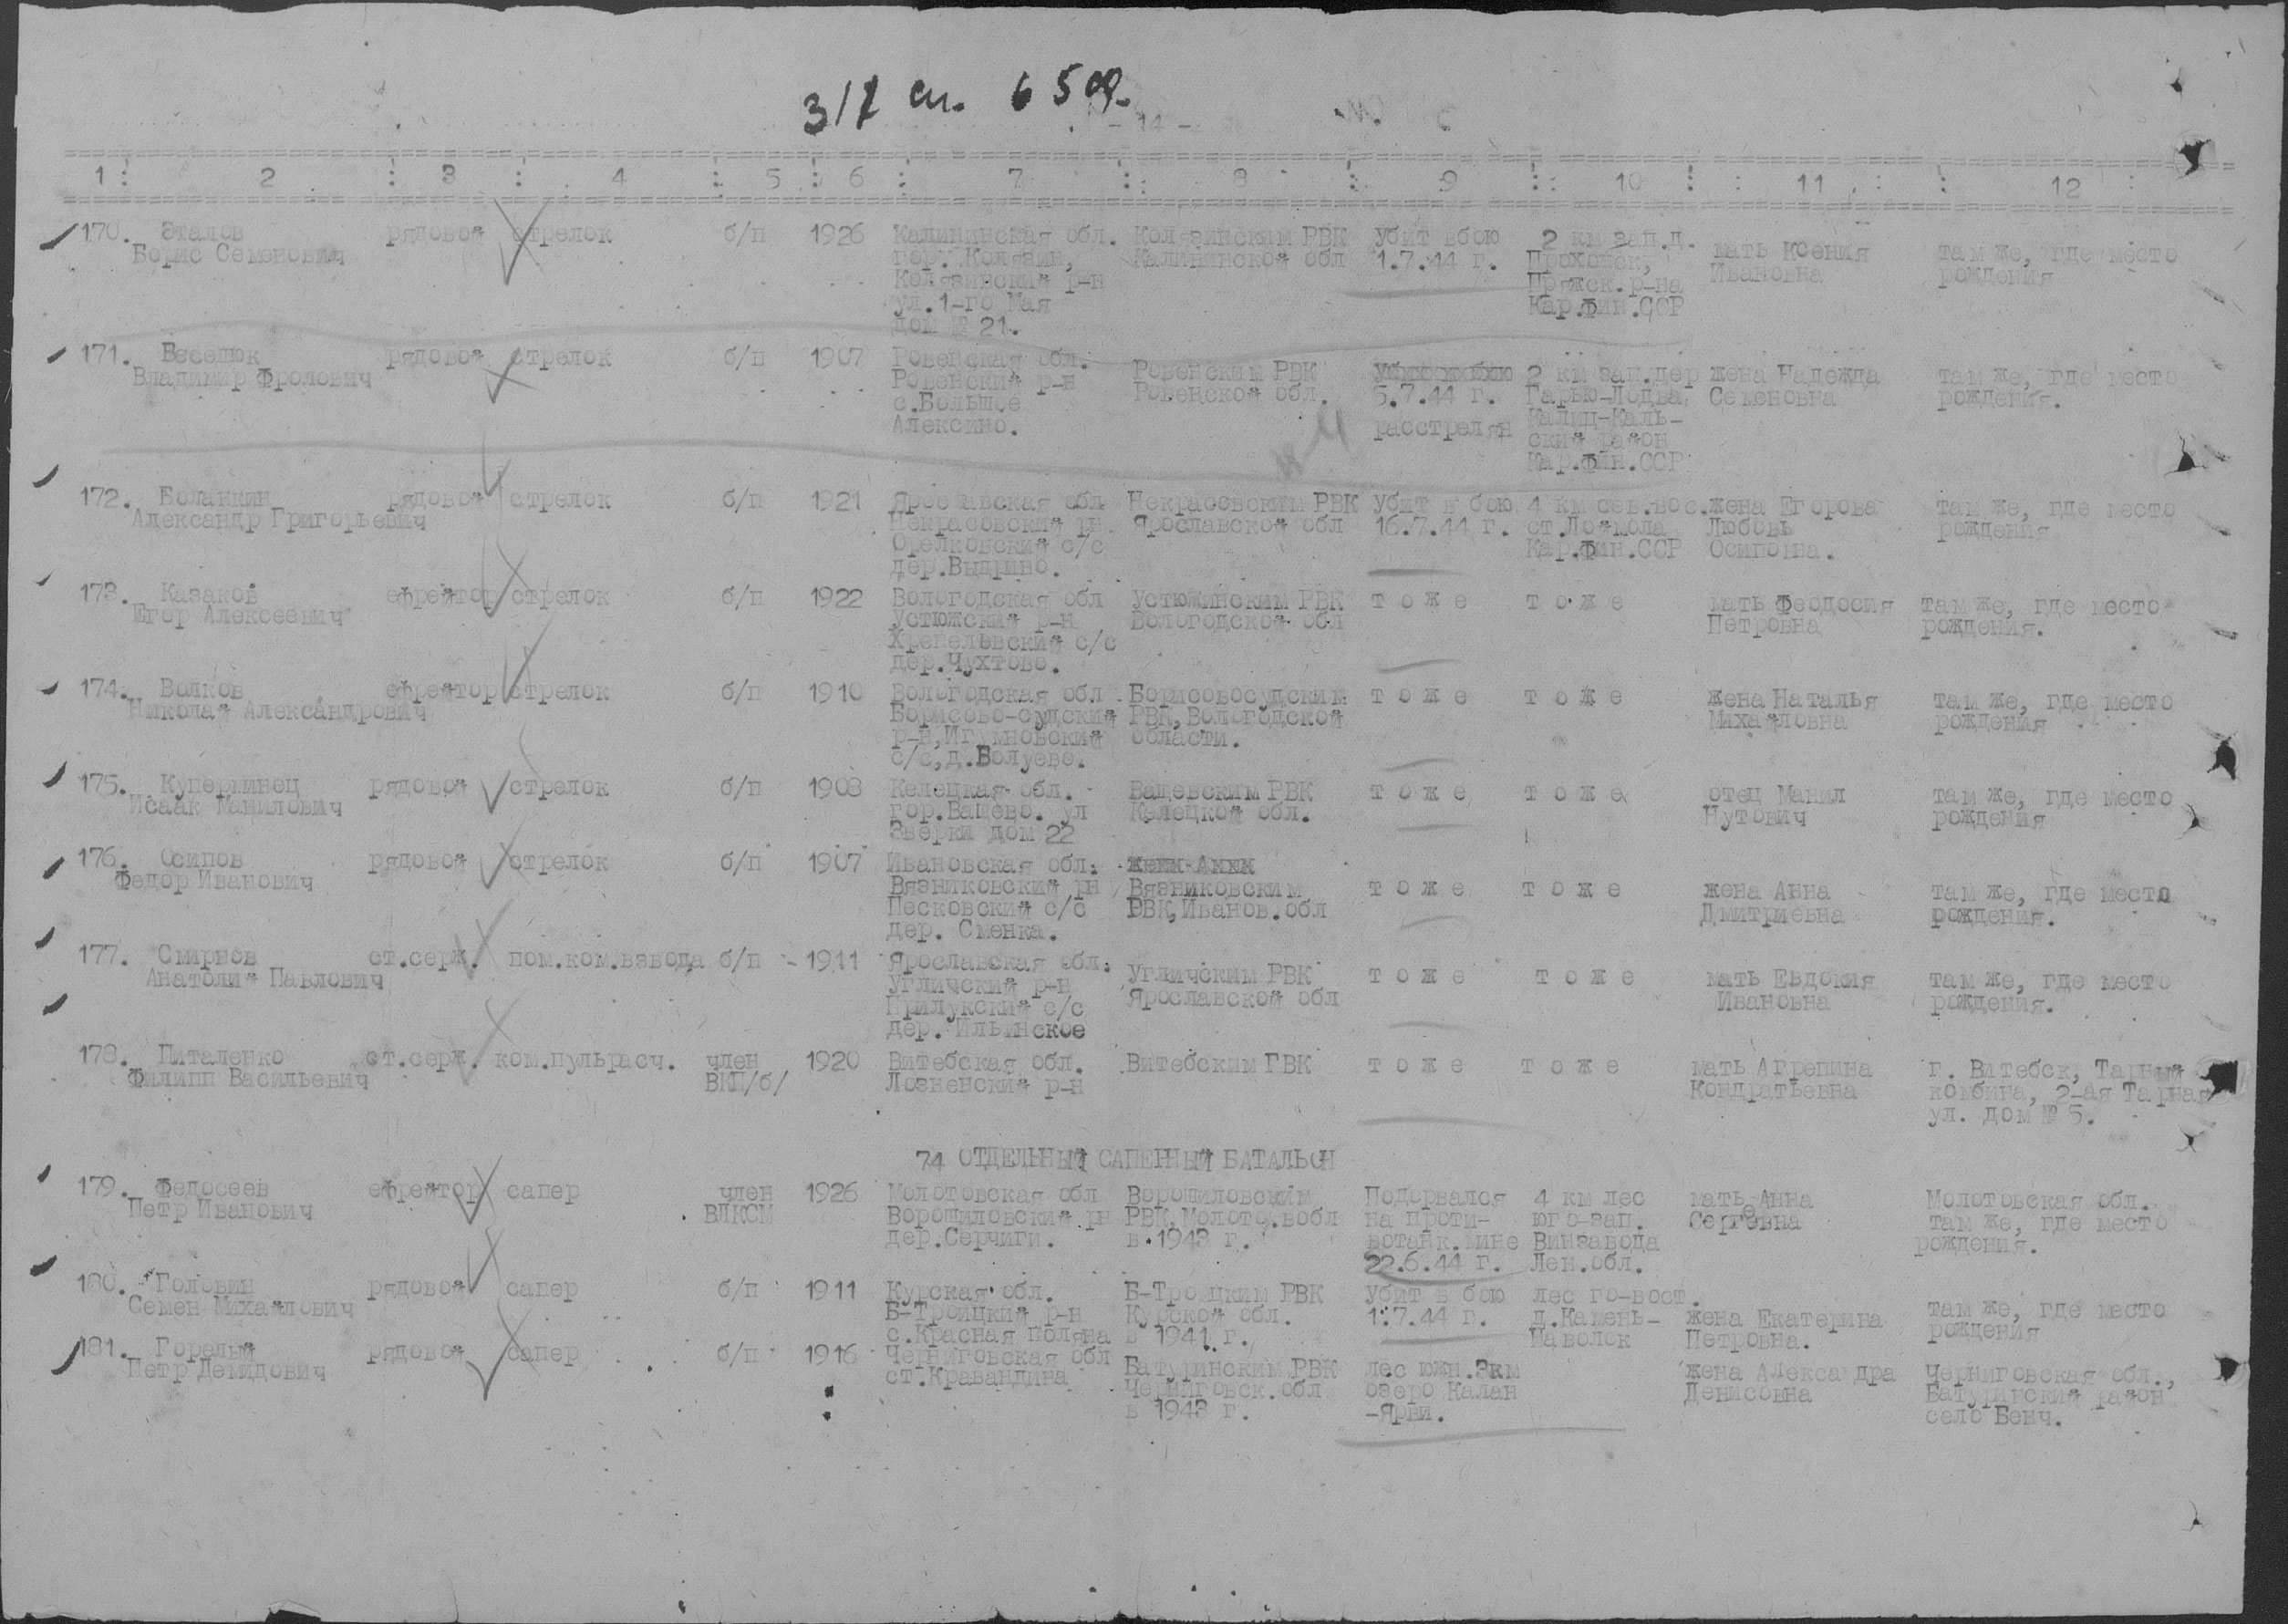 317 сп. 65 сд.
- 14 -
1 2 3 4 5 6 7 8 9 10 11 12
170. Эталов рядовой стрелок б/п 1926 Калининская обл. Колязинским РВК убит вбою 2 км зап.д. мать Ксения там же, где место
Борис Семенович гор. Колязин, Калининской обл 1.7.44 г. Прохошек, Ивановна рождения
Колязинский р-н Пряжск.р-на
ул.1-го Мая Кар.Фин.ССР
дом № 21.
171. Веселюк рядовой стрелок б/п 1907 Ровенская обл. Ровенским РВК убит вбою 2 км зап.дер жена Надежда там же, где место
Владимир Фролович Ровенский р-н Ровенской обл. 5.7.44 г. Гарью-Лодва, Семеновна рождения.
с.Большое расстрелян
Алексино. ский район
Кар.Фин.ССР
172. Болашкин рядовой стрелок б/п 1921 Ярославская обл Некрасовским РВК убит в бою 4 км сев.вос. жена Егорова там же, где место
Александр Григорьевич Некрасовский рн Ярославской обл 16.7.44 г. ст.Лоймола Любовь рождения
Орелковский с/с Кар.Фин.ССР Осиповна.
дер.Выдрино.
173. Казаков ефрейтор стрелок б/п 1922 Вологодская обл Устюжинским РВК т о ж е т о ж е мать Феодосия там же, где место
Егор Алексеевич Устюжский р-н Вологодской обл Петровна рождения.
Хрепелевский с/с
дер.Чухтово.
174. Волков ефрейтор стрелок б/п 1910 Вологодская обл Борисовосудским т о ж е т о ж е жена Наталья там же, где место
Николай Александрович Борисово-судский РВК, Вологодской Михайловна рождения
р-н,Игумновский области.
с/с,д.Волуево.
175. Куперминец рядовой стрелок б/п 1908 Келецкая обл. Вашевским РВК т о ж е т о ж е отец Манил там же, где место
Исаак Манилович гор.Вашево. ул Келецкой обл. Нутович рождения
Зверки дом 22
176. Осипов рядовой стрелок б/п 1907 Ивановская обл. жена Анна
Федор Иванович Вязниковский рн Вязниковским т о ж е т о ж е жена Анна там же, где место
Песковский с/с РВК,Иванов.обл Дмитриевна рождения.
дер. Сменка.
177. Смирнов ст.серж. пом.ком.взвода б/п - 1911 Ярославская обл. Угличским РВК т о ж е т о ж е мать Евдокия там же, где место
Анатолий Павлович Угличский р-н Ярославской обл Ивановна рождения.
Прилукский с/с
дер. Ильинское
178. Питаленко ст.серж. ком.пульрасч. член 1920 Витебская обл. Витебским ГВК т о ж е т о ж е мать Агрепина г. Витебск, Тарный
Филипп Васильевич ВКП/б/ Лозненский р-н Кондратьевна комбина, 2-ая Тарная
ул. дом № 5.
74 ОТДЕЛЬНЫЙ САПЕРНЫЙ БАТАЛЬОН
179. Федосеев ефрейтор сапер член 1926 Молотовская обл Ворошиловским Подорвался 4 км лес мать Анна Молотовская обл.
Петр Иванович ВЛКСМ Ворошиловский рн РВК,Молотов.вобл на проти- юго-зап. Сергеевна там же, где место
дер.Серчиги. в 1943 г. вотанк.мине Винзавода рождения.
22.6.44 г. Лен.обл.
180. Головин рядовой сапер б/п 1911 Курская обл. Б-Троицким РВК убит в бою лес го-вост. жена Екатерина там же, где место
Семен Михайлович Б-Троицкий р-н Курской обл. 1.7.44 г. д.Камень- Петровна. рождения
с.Красная поляна в 1941 г. Наволок
181. Горелый рядовой сапер б/п 1916 Черниговская обл Батуринским РВК лес южн.3км жена Александра Черниговская обл.,
Петр Демидович ст.Кравандина Черниговск.обл озеро Калан Денисовна Батуринский район
в 1943 г. -Ярви. село Бенч.